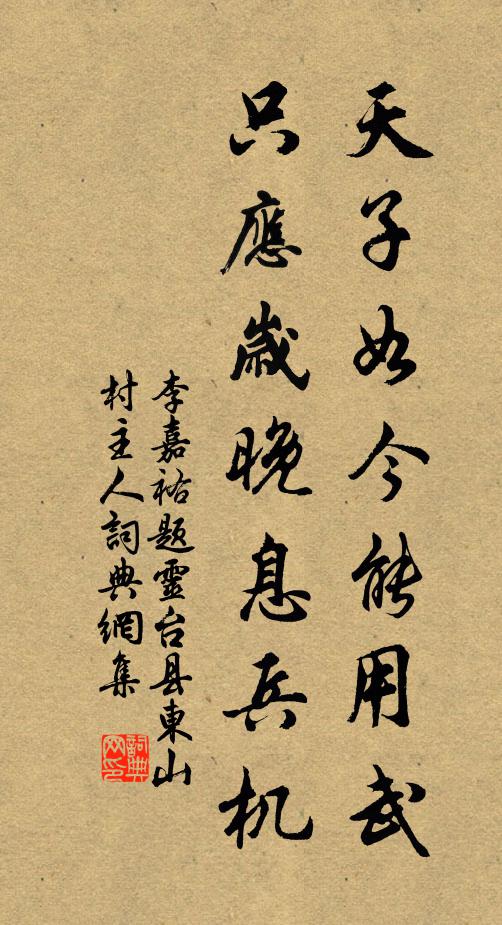 天子如今能用武
只應歲晚息兵机
李嘉祐题靈台县東山
村主人詞典網集
詞典
网印